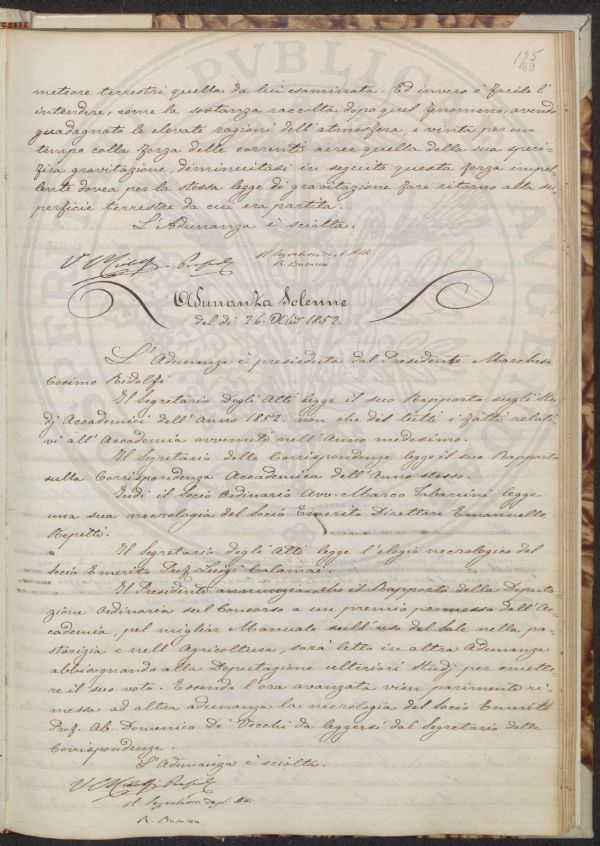 125
metiore terrestri quella da lui esaminata. Ed invero è facile l'
intendere, come la sostanza raccolta dopo quel fenomeno, avendo
guadagnato le elevate ragioni dell'atmosfera, e vinta per un
tempo colla forza delle correnti aeree quella della sua speci-
fica gravitazione, diminuitasi in seguito questa forza impel-
lente dovea per la stessa legge di gravitazione fare ritorno alla su-
perficie terrestre da cui era partita.
L'Adunanza è sciolta.
Il Segretario degli Atti
Adunanza Solenne
del dì 26. Xbre 1852.
L'Adunanza è presieduta dal Presidente Marchese
Cosimo Ridolfi
Il Segretario degli Atti legge il suo Rapporto sugli Stu-
dj Accademici dell'Anno 1852. non che di tutti i fatti relati-
vi all'Accademia avvenuti nell'Anno medesimo.
Il Segretario delle Corrispondenze legge il suo Rapporto
sulla Corrispondenza Accademica dell'Anno stesso.
Indi il Socio Ordinario Avv. Marco Tabarrini legge
una sua necrologia del Socio Emerito Direttore Emanuelle
Repetti.
Il Segretario degli Atti legge l'elogio necrologico del
Socio Emerito Prof. Luigi Calamai.
Il Presidente annunzia che il Rapporto della Deputa-
zione Ordinaria sul Concorso a un premio promesso dall'Ac-
cademia, pel miglior Manuale sull'uso del Sale nella pa-
storizia e nell'Agricoltura, sarà letto in altra Adunanza
abbisognando alla Deputazione ulteriori studj per emette-
re il suo voto. Essendo l'ora avanzata vien parimente ri-
messa ad altra adunanza la necrologia del Socio Emerito
Prof. Ab. Domenico De' Vecchi da leggersi dal Segretario delle
Corrispondenze.
L'Adunanza è sciolta.
Il Segretario degli Atti